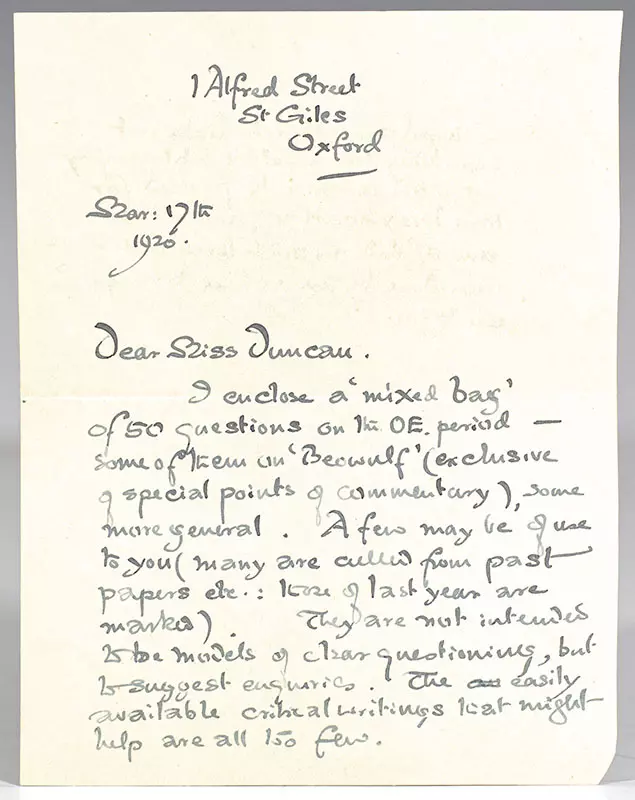 1 Alfred Street
St Giles
Oxford
Mar: 17th
1920.
Dear Miss Duncan.
I enclose a 'mixed bag'
of 50 questions on the OE. period —
some of them on 'Beowulf' (exclusive
of special points of commentary), some
more general. A few may be of use
to you (many are culled from past
papers etc.: those of last year are
marked). They are not intended
to be models of clear questioning, but
to suggest enquiries. The easily
available critical writings that might
help are all too few.